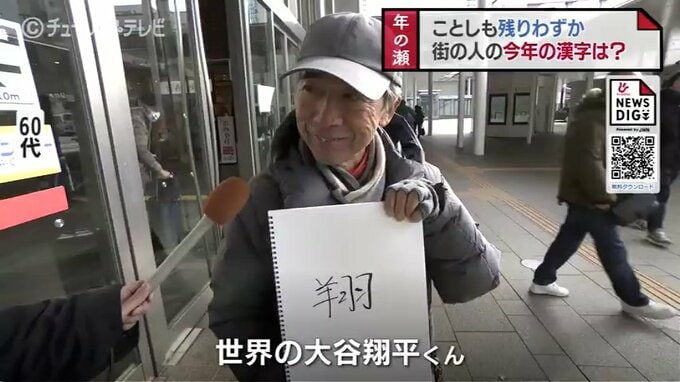 ©チューリップテレビ
年の瀬
ことしも残りわずか
街の人の今年の漢字は?
NEWS
DIG
Powered by JNN
無料ダウンロード
60代
翔
世界の大谷翔平くん